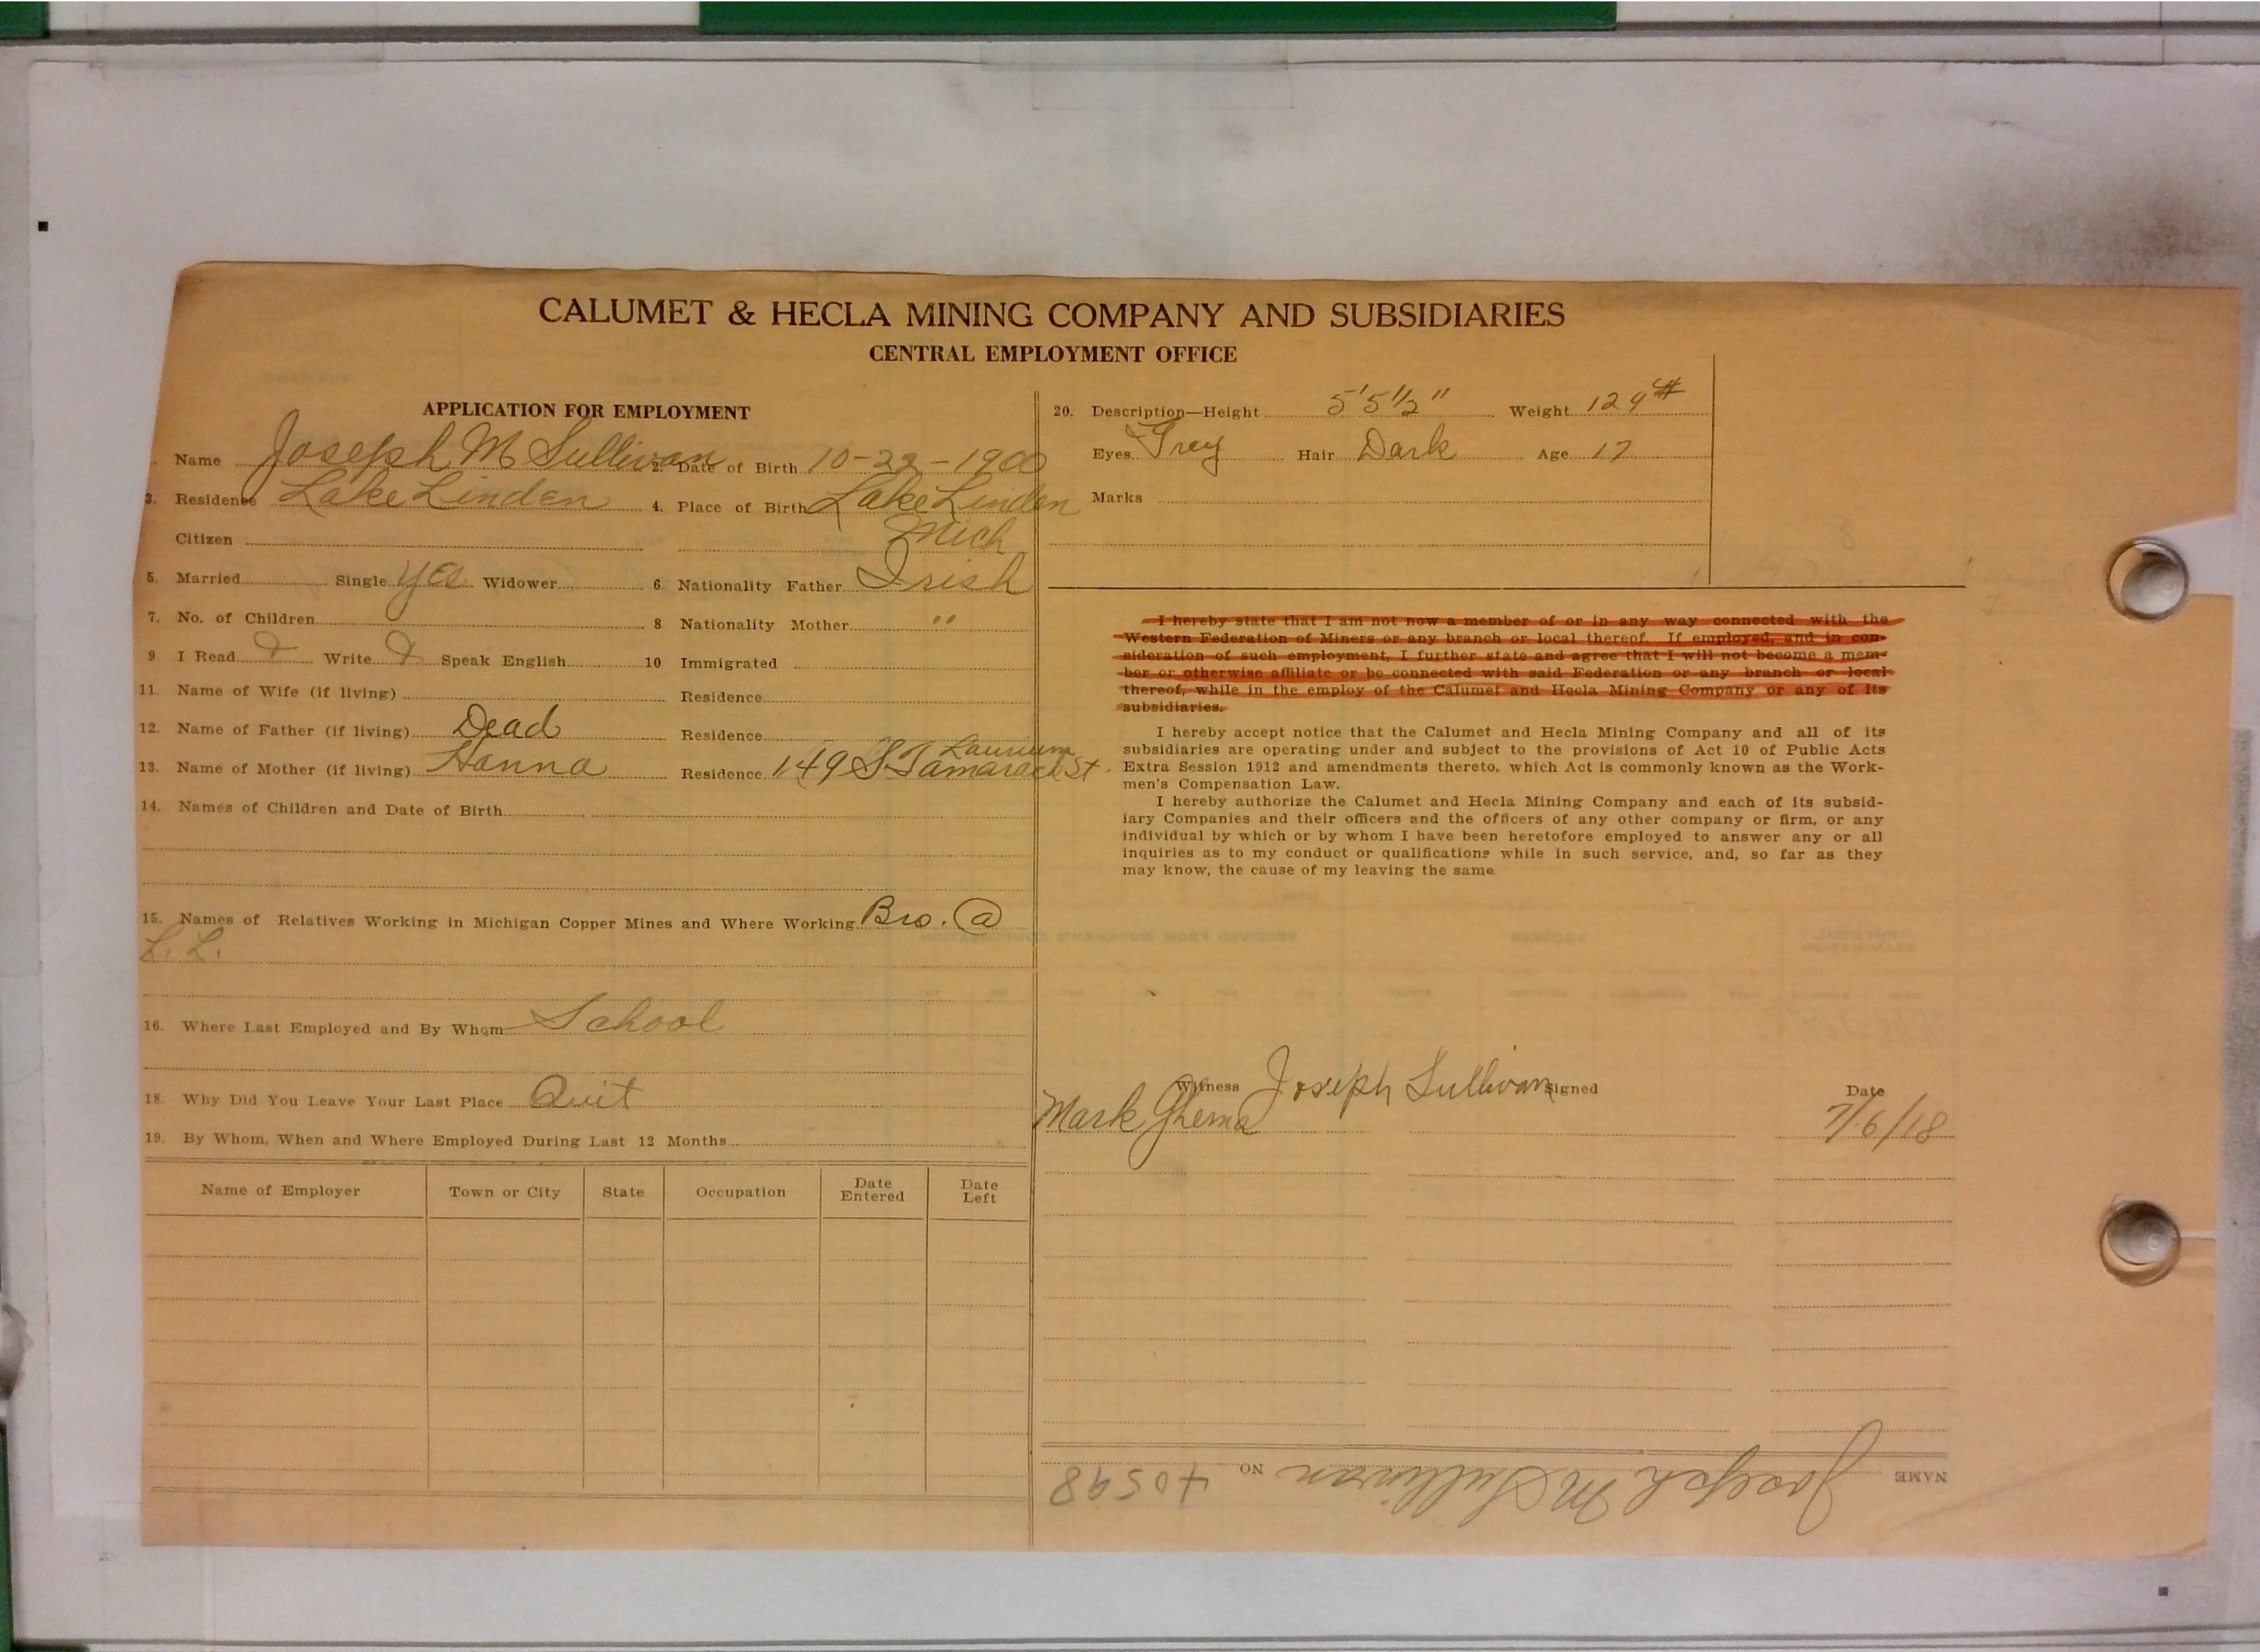 CALUMET & HECLA MINING COMPANY AND SUBSIDIARIES
CENTRAL EMPLOYMENT OFFICE
APPLICATION FOR EMPLOYMENT
Name Joseph M Sullivan 2. Date of Birth 10-22-1900
3. Residence Lake Linden 4. Place of Birth Lake Linden
Citizen Mich
5. Married Single yes Widower 6. Nationality Father Irish
7. No. of Children 8 Nationality Mother "
9 I Read Write Speak English 10 Immigrated
11. Name of Wife (if living) Residence
12. Name of Father (if living) Dead Residence
Laurium
13. Name of Mother (if living) Hanna Residence 149 S Tamarack St.
14. Names of Children and Date of Birth
15. Names of Relatives Working in Michigan Copper Mines and Where Working Bro. @
L. L.
16. Where Last Employed and By Whom School
18. Why Did You Leave Your Last Place Quit
19. By Whom, When and Where Employed During Last 12 Months
Name of Employer Town or City State Occupation Date Entered Date Left
20. Description—Height 5'5 1/2" Weight 129#
Eyes Grey Hair Dark Age 17
Marks
I hereby state that I am not now a member of or in any way connected with the
Western Federation of Miners or any branch or local thereof. If employed, and in con-
sideration of such employment, I further state and agree that I will not become a mem-
ber or otherwise affiliate or be connected with said Federation or any branch or local
thereof, while in the employ of the Calumet and Hecla Mining Company or any of its
subsidiaries.
I hereby accept notice that the Calumet and Hecla Mining Company and all of its
subsidiaries are operating under and subject to the provisions of Act 10 of Public Acts
Extra Session 1912 and amendments thereto, which Act is commonly known as the Work-
men's Compensation Law.
I hereby authorize the Calumet and Hecla Mining Company and each of its subsid-
iary Companies and their officers and the officers of any other company or firm, or any
individual by which or by whom I have been heretofore employed to answer any or all
inquiries as to my conduct or qualifications while in such service, and, so far as they
may know, the cause of my leaving the same
Witness Joseph Sullivan Signed Date
Mark 7/6/18
NAME Joseph M Sullivan NO 40598